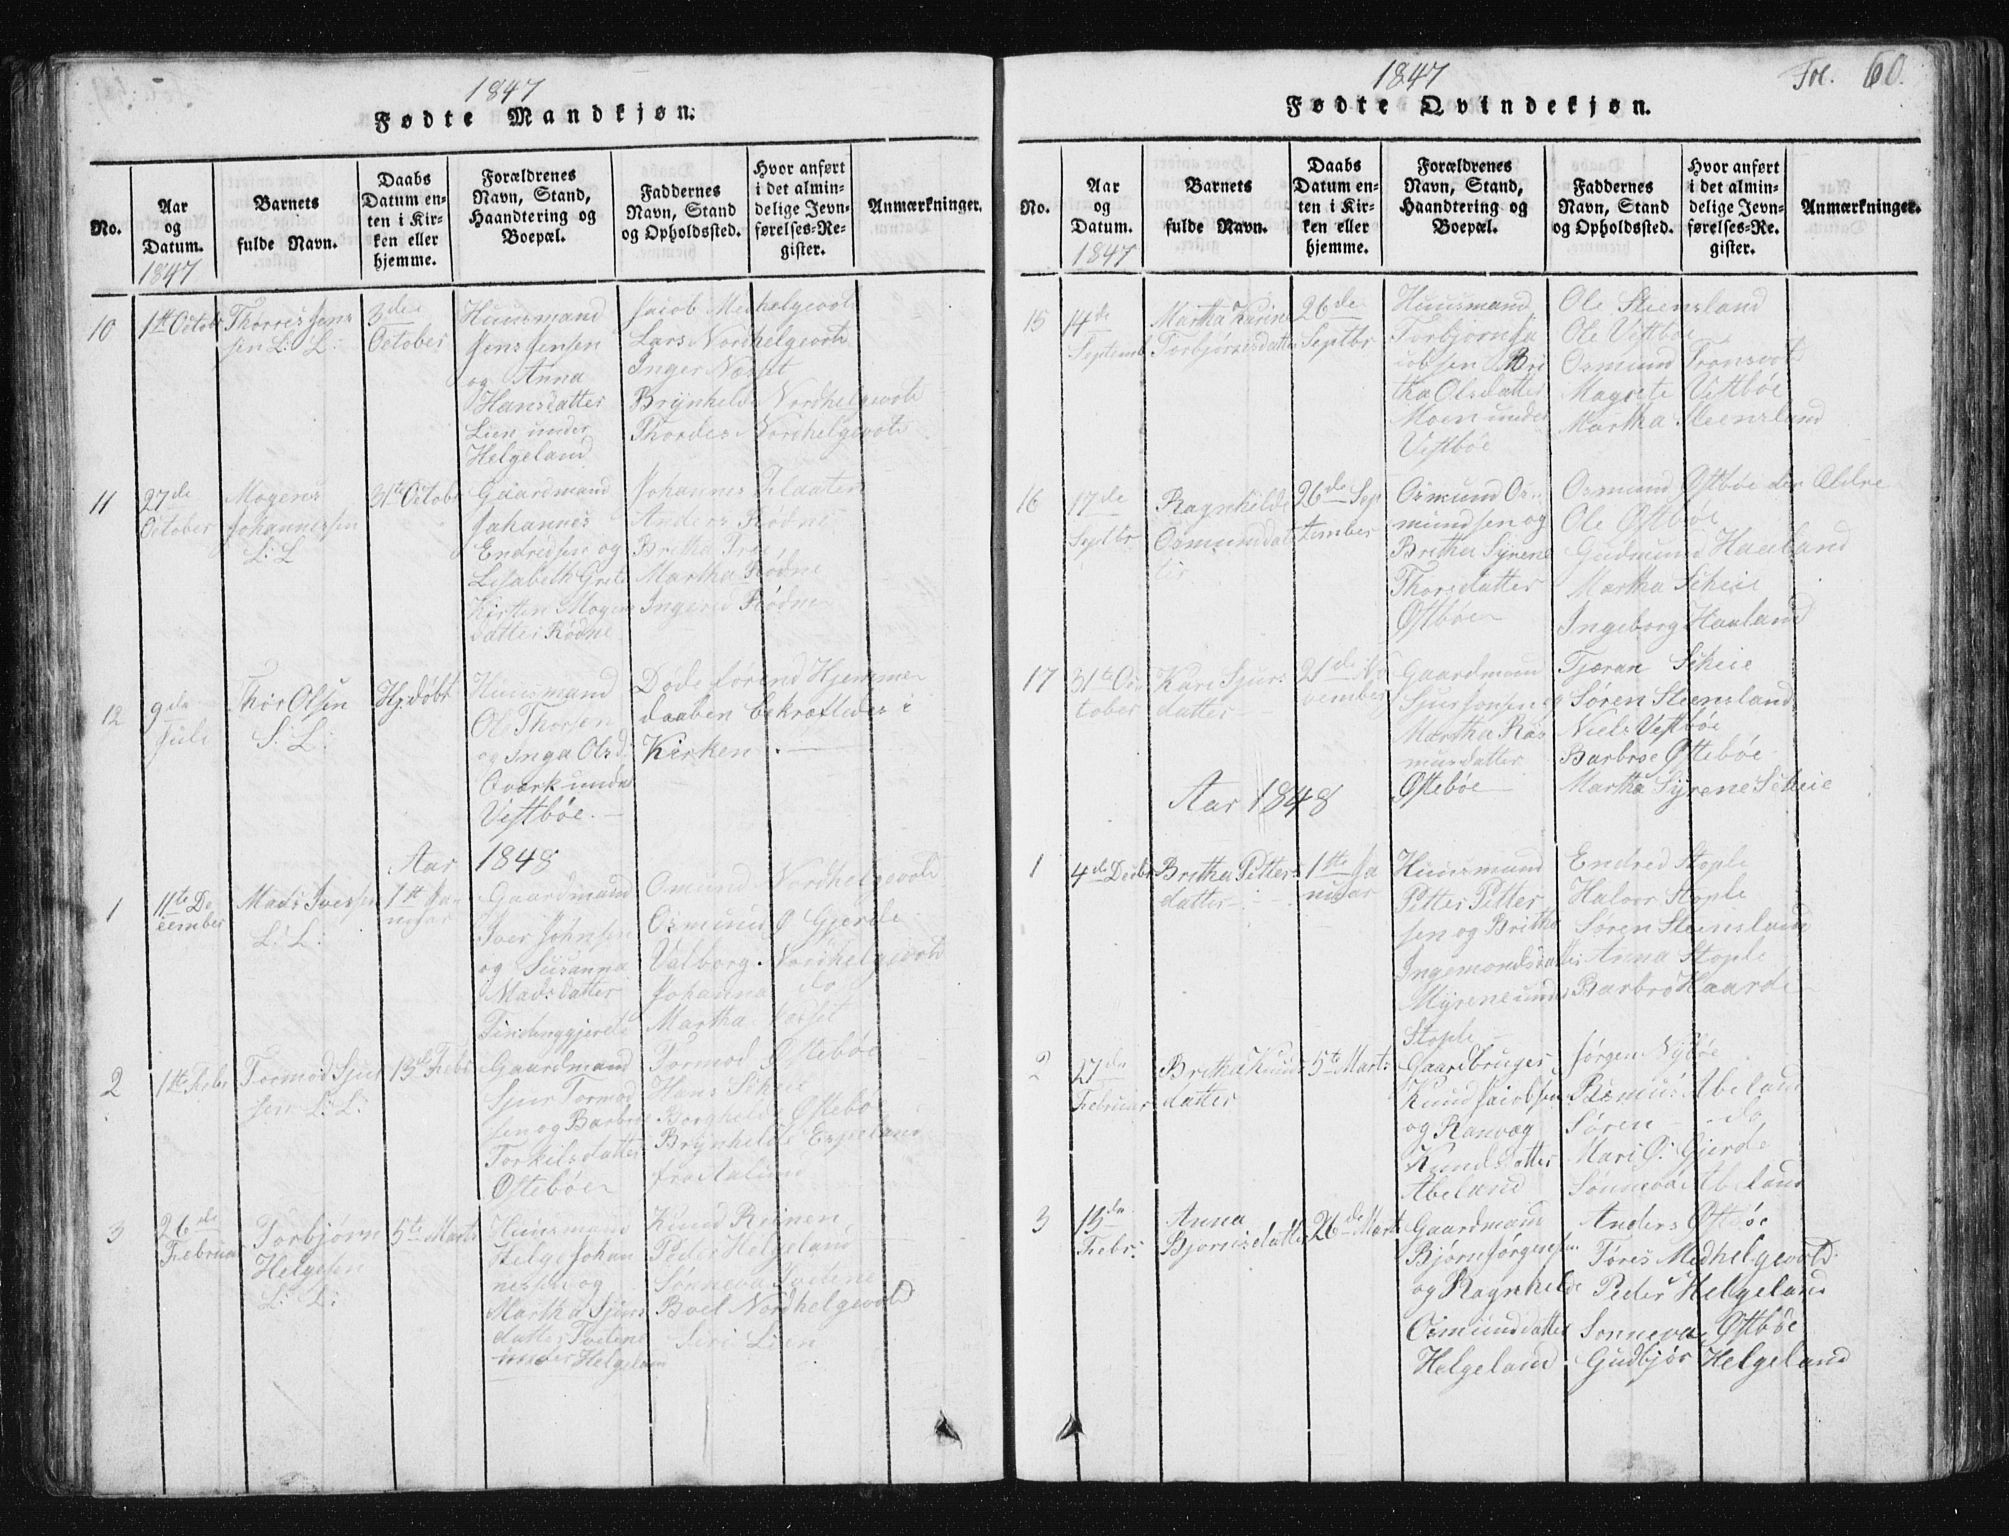 1847
Fødte Mandkjøn.
No.
Aar
og
Datum.
1847
Barnets
fulde Navn.
Daabs
Datum en-
ten i Kir-
ken eller
hjemme.
Forældrenes
Navn, Stand,
Haandtering og
Boepæl.
Faddernes
Navn, Stand
og Opholdssted.
Hvor anført
i det almin-
delige Jevn-
førelses-Re-
gister.
Anmærkninger.
10
1ste Octobr
Thorres Jens
sen L: L:
3die
October
Huusmand
Jens Jensen
og Anna
Hansdatter
Lien under
Helgeland
Jacob Medhelgevold
Lars Nordhelgevold
Inger
Brynhilde Nordhelgevold
Thordes Nordhelgevold
11
27de
October
Mogens
Johannessen
L: L
31te Octobr
Gaardmand
Johannes
Endresen og
Lisabeth Grete
Kirsten Mogens
datter Rødne
Johannes
Anders Rødne
Britha
Martha Rødne
Ingered Rødne
12
9de
Juli
Thor Olsen
S: L:
Hj.døbt
Huusmand
Ole Thorsen
og Inga Olsd:
under
Vestbøe.
Døde førend Hjemme-
daaben bekræftedes i
Kirken.
Aar 1848
1
11te De-
cember
Mads Iversen
L: L:
1ste Ja-
nuar
Gaardmand
Iver Johnsen
og Susanna
Madsdatter
Osmund Nordhelgevold
Osmund Ø Gjerde
Valborg Nordhelgevold
Johanna do
Martha
2
1ste Febr
Tormod Sjur
sen L: L:
13de Febr
Gaardmand
Sjur Tormod
sen og Barbroe
Torkilsdatter
Østebøe
Tormod Østebøe
Hans Scheie
Borghilde Østebøe
Brynhilde Espeland
fra
3
26de
Februar
Torbjørn
Helgesen
L: L:
5te Marts
Huusmand
Helge Johan
nessen og
Martha Sjurs
datter Tvetene
under Helgeland
Knud
Peder Helgeland
Sønneva Tvetene
Boel Nordhelgevold
Siri Lien
1847
Fol. 60.
Fødte Qvindekjøn.
No.
Aar
og
Datum.
1847
Barnets
fulde Navn.
Daabs
Datum en-
ten i Kir-
ken eller
hjemme.
Forældrenes
Navn, Stand,
Haandtering og
Boepæl.
Faddernes
Navn, Stand
og Opholdssted.
Hvor anført
i det almin-
delige Jevn-
førelses-Re-
gister.
Anmærkninger.
15
14de
Septemb
Martha Karine
Torbjørnsdatter
26de
Septbr
Huusmand
Torbjørn Ja
cobsen Bri
tha Olsdatter
Moen under
Vestbøe
Ole Steensland
Ole Vestbøe
Osmund
Magrete Vestbøe
Martha Steensland
16
17de
Septbr
Ragnhilde
Osmundsdat
ter
26de Sep
tember
Osmund Os
mundsen og
Britha Syrene
Thorsdatter
Østbøe
Osmund Østbøe den Ældre
Ole Østbøe
Gudmund Haaland
Martha Scheie
Ingeborg Haaland
17
31te Oc
tober
Kari Sjurs
datter
21de No
vember
Gaardmand
Sjur Jonsen og
Martha Ras
musdatter
Østebøe
Tjeran Scheie
Søren Steensland
Niels Vestbøe
Barbroe Østebøe
Martha Syrene Scheie
Aar 1848
1
4de Decbr
Britha Petters
datter
1ste Ja
nuar
Huusmand
Petter Petter
sen og Britha
Ingemondsdatter
Myrene under
Stople
Endred Stople
Halvor Stople
Søren Steensland
Anna Stople
Barbro Haarde
2
27de
Februar
Britha Knuds
datter
5te Marts
Gaardbruger
Knud Jacobsen
og Ranvæg
Knudsdatter
Abeland
Jørgen Nybøe
Rasmus Abeland
Søren do
Mari Ø: Gjerde
Sønneva Abeland
3
15de
Febr:
Anna
Bjørnsdatter
26de Marts
Gaardmand
Bjørn Jørgensen
og Ragnhilde
Osmundsdatter
Helgeland
Anders Østbøe
Tøres Medhelgevold
Peder Helgeland
Sonneva Østbøe
Gudbjør Helgeland